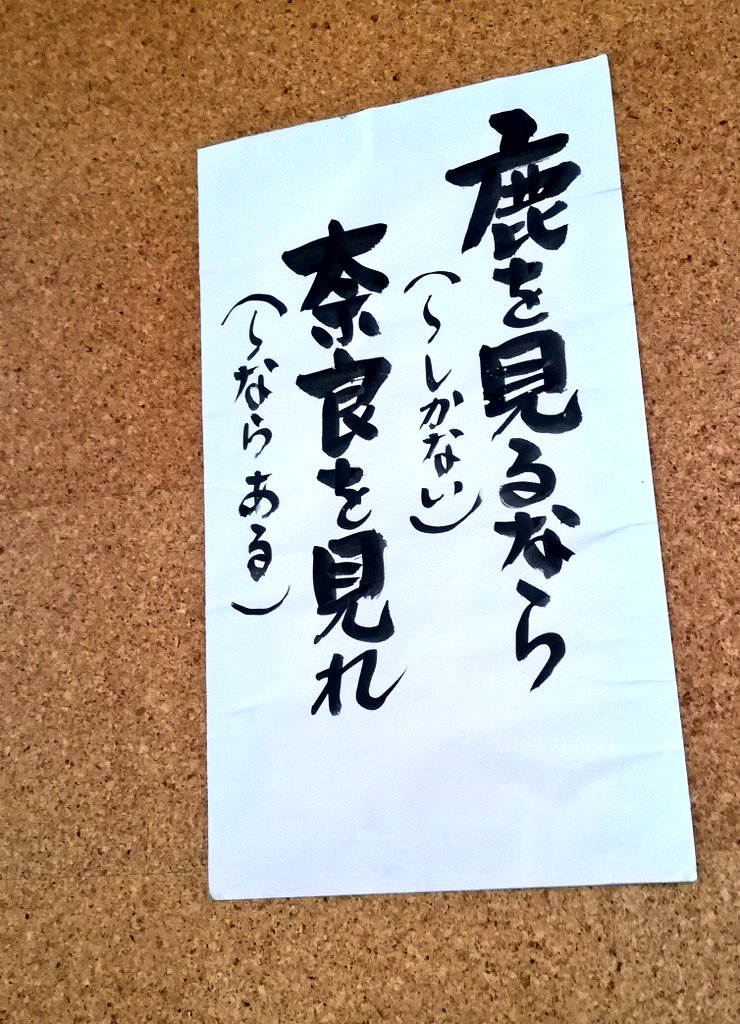 鹿を見るなら
(〜しかない)
奈良を見れ
(〜ならある)